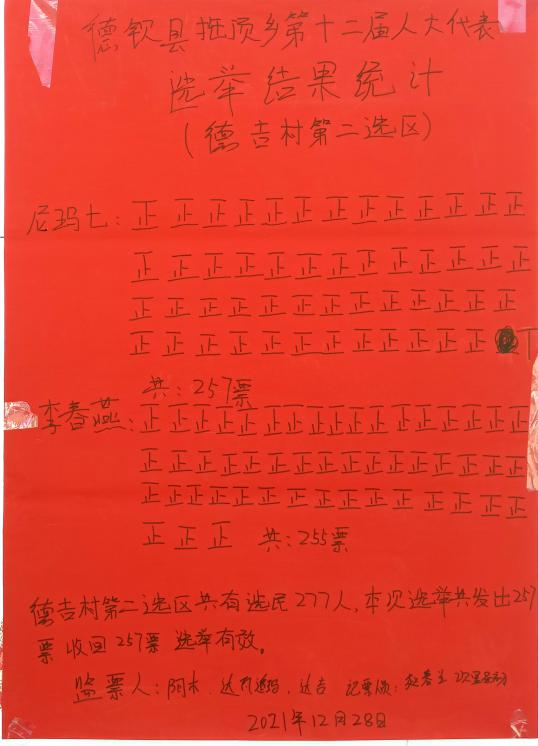 德钦县拖顶乡第十二届人大代表
选举结果统计
(德吉村第二选区)
尼玛七: 正正正正正正正正正正正正正
正正正正正正正正正正正正正
正正正正正正正正正正正正正
正正正正正正正正正正正正 T
共: 257票
李春燕: 正正正正正正正正正正正正正正正正
正正正正正正正正正正正正正正正正
正正正正正正正正正正正正正正正正
正正正 共: 255票
德吉村第二选区共有选民277人,本次选举共发出257
票 收回257票 选举有效。
监票人: 阿木、达瓦、达吉 记票员: 赵春兰
2021年12月28日